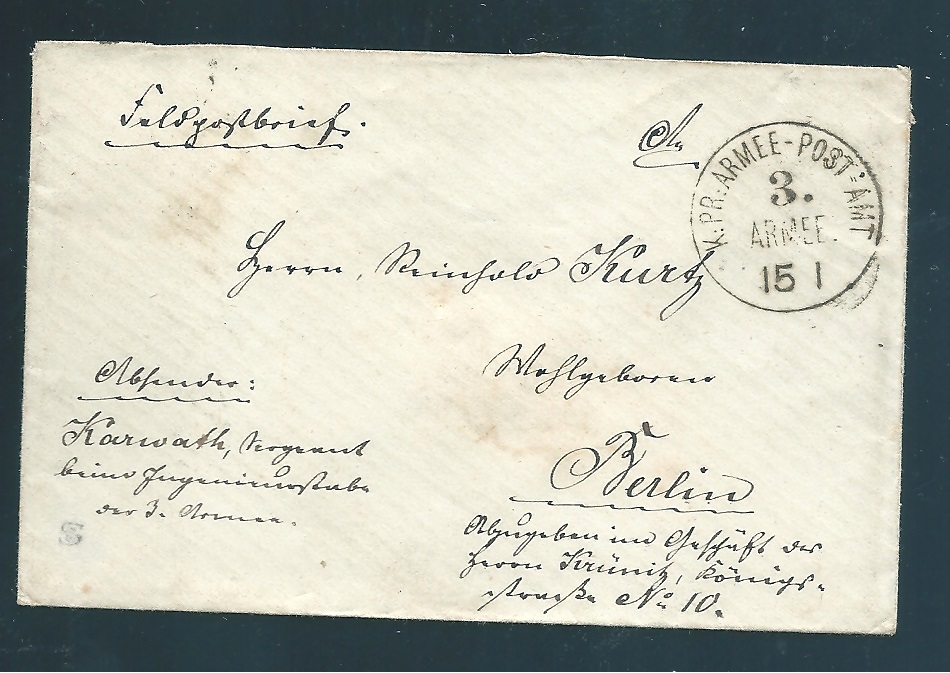 Feldpostbrief.
An
K. PR. ARMEE-POST-AMT
3.
ARMEE.
15 1
Herrn, Reinhold Kurtz
Wohlgeboren
Berlin
Abzugeben im Geschäft des
Herrn Krünitz, Königs-
straße No 10.
Absender:
Karwath, Sergeant
beim Ingenieurstabe
der 3. Armee.